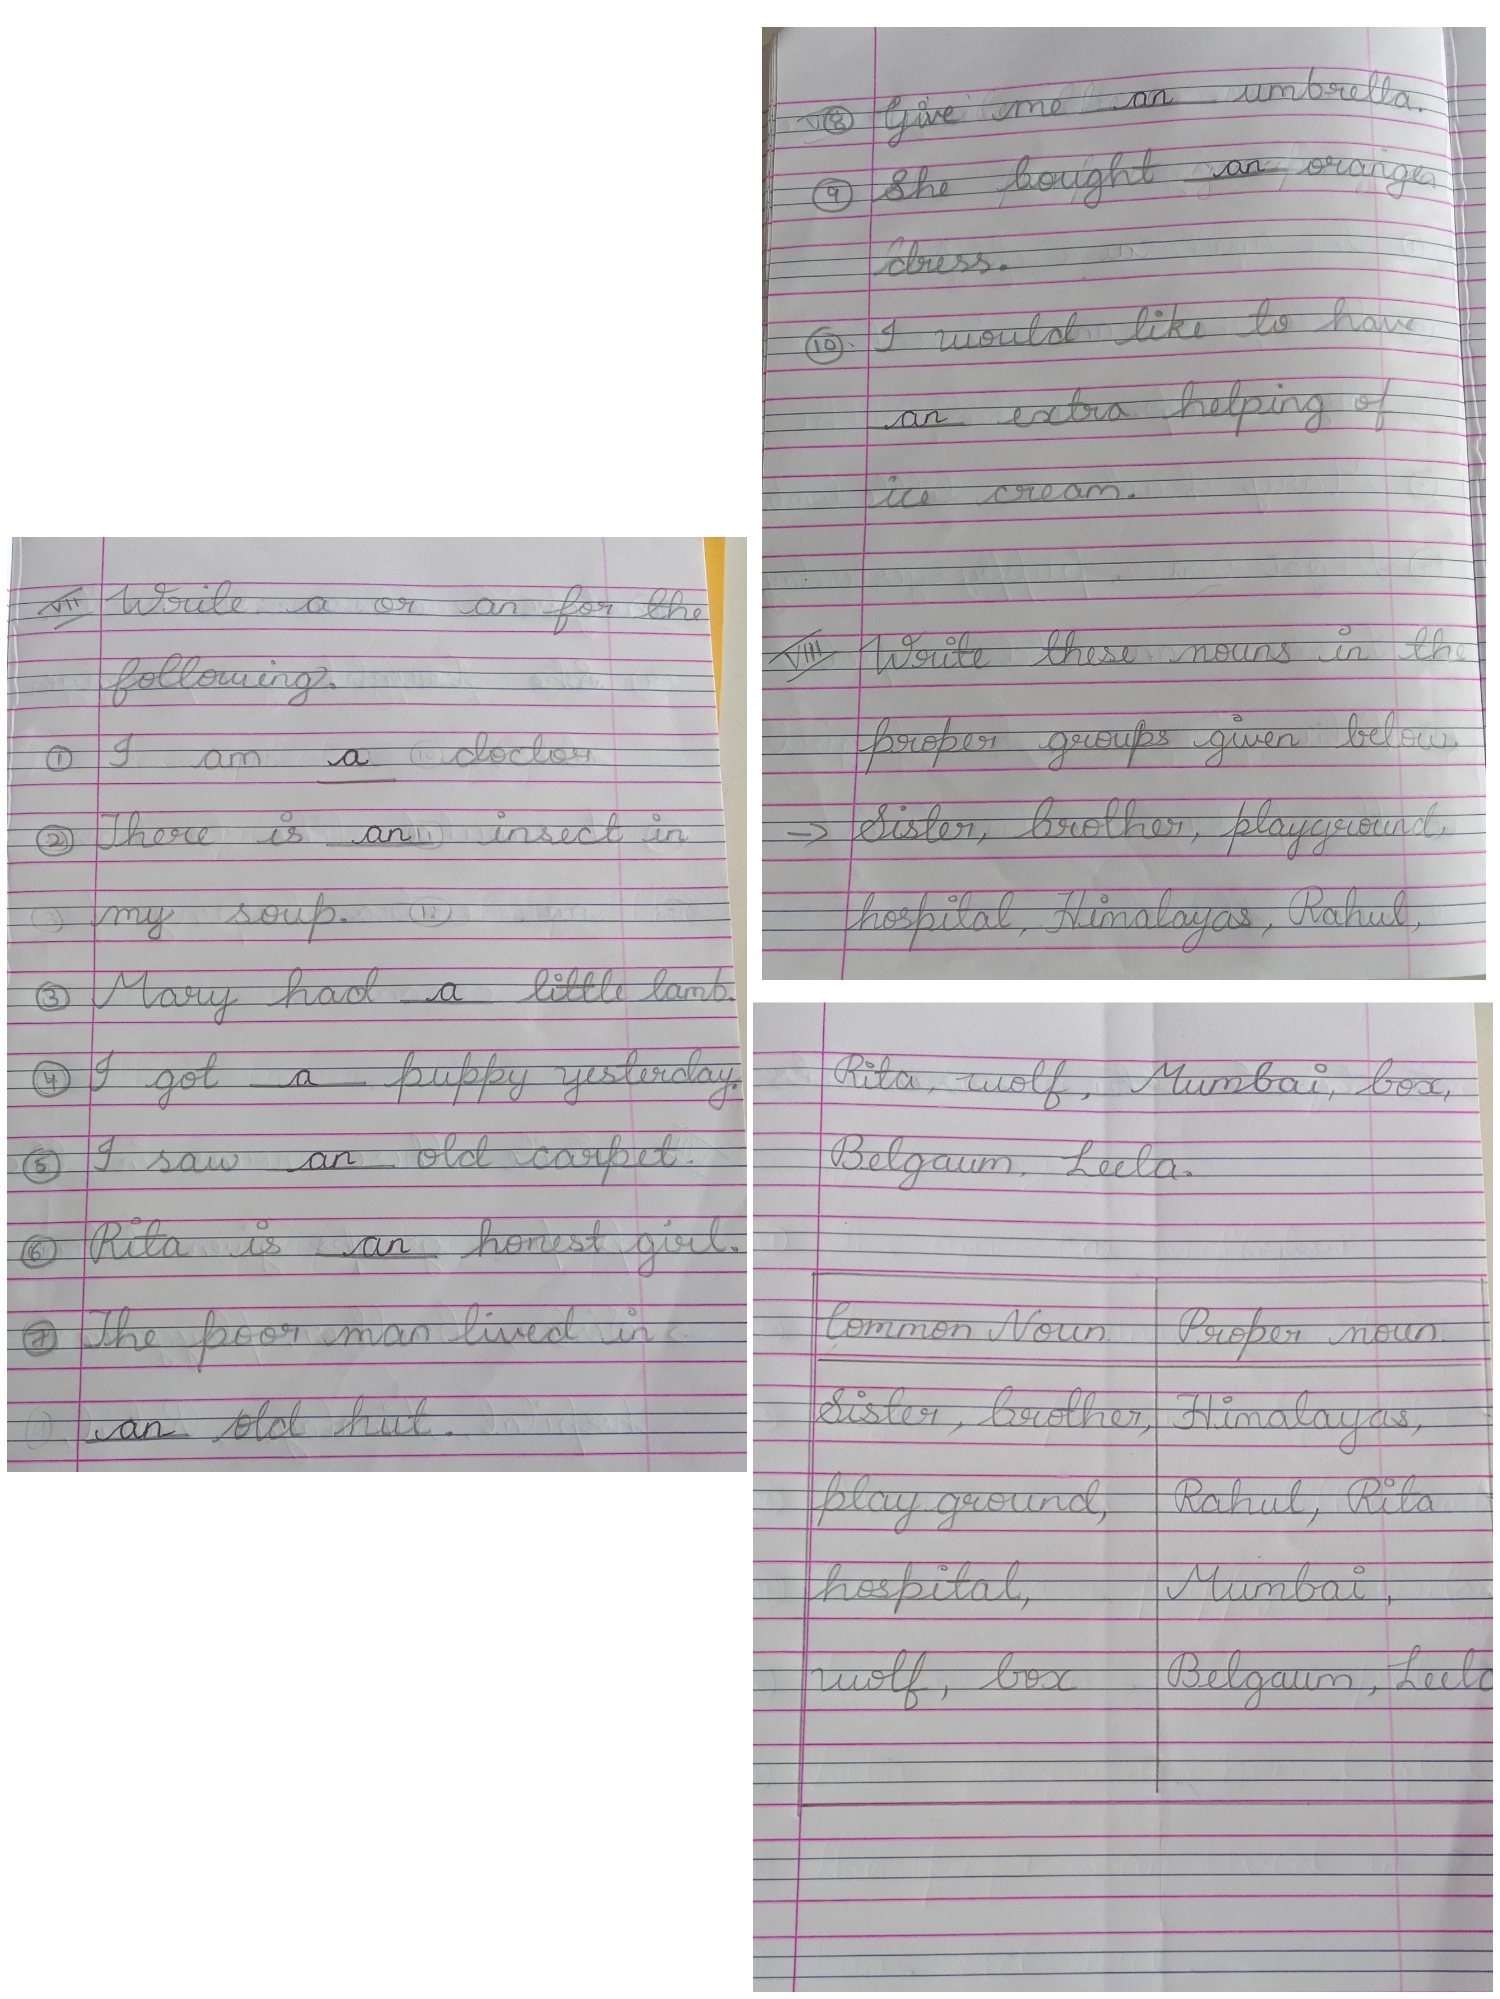 VII Write a or an for the
following.
① I am a doctor
② There is an insect in
my soup.
③ Mary had a little lamb.
④ I got a puppy yesterday.
⑤ I saw an old carpet.
⑥ Rita is an honest girl.
⑦ The poor man lived in
an old hut.
⑧ Give me an umbrella.
⑨ She bought an orange
dress.
⑩. I would like to have
an extra helping of
ice cream.
VIII Write these nouns in the
proper groups given below
→ Sister, brother, playground,
hospital, Himalayas, Rahul,
Rita, wolf, Mumbai, box,
Belgaum, Leela.
Common Noun Proper noun.
Sister, brother, Himalayas,
play ground, Rahul, Rita
hospital, Mumbai,
wolf, box Belgaum, Leela